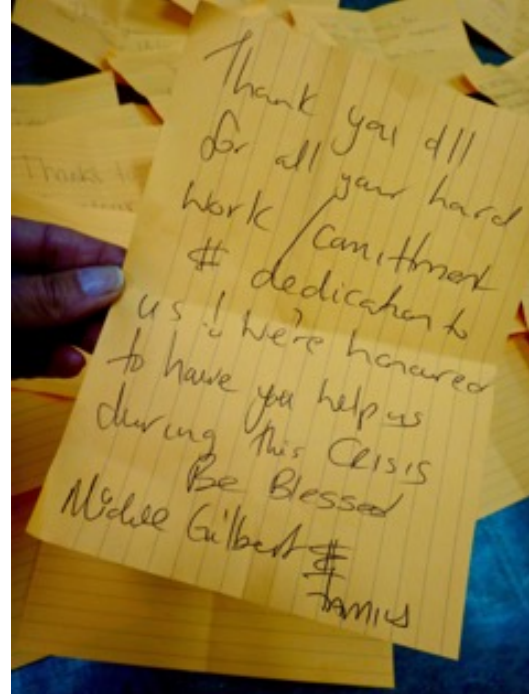 Thank you all
for all your hard
work / comitment
& dedication to
us! We're honoured
to have you help us
during this CRISIS
Be Blessed
Gilbert &
FAMILY
Thanks to